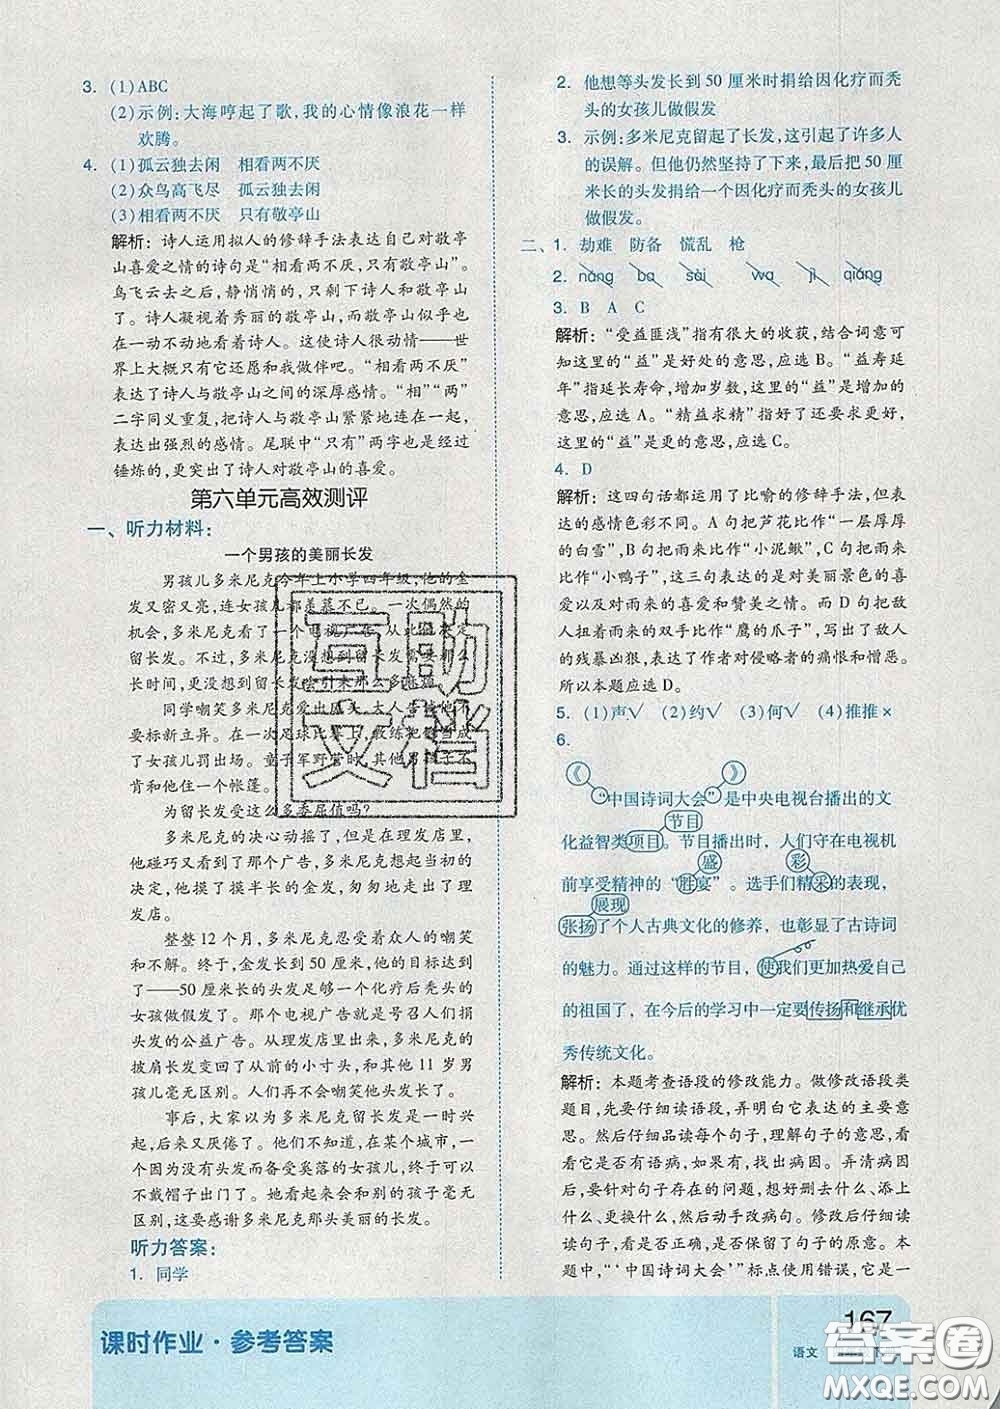 3. (1)ABC
(2)示例:大海哼起了歌,我的心情像浪花一样
欢腾。
4. (1)孤云独去闲 相看两不厌
(2)众鸟高飞尽 孤云独去闲
(3)相看两不厌 只有敬亭山
解析:诗人运用拟人的修辞手法表达自己对敬亭
山喜爱之情的诗句是“相看两不厌,只有敬亭山。”
鸟飞云去之后,静悄悄的,只剩下诗人和敬亭山
了。诗人凝视着秀丽的敬亭山,而敬亭山似乎也
在一动不动地看着诗人。这使诗人很动情——世
界上大概只有它还愿和我做伴吧。“相看两不厌”
表达了诗人与敬亭山之间的深厚感情。“相”“两”
二字同义重复,把诗人与敬亭山紧紧地连在一起,
表达出强烈的感情。尾联中“只有”两字也是经过
锤炼的,更突出了诗人对敬亭山的喜爱。
第六单元高效测评
一、听力材料:
一个男孩的美丽长发
男孩儿多米尼克今年上小学四年级,他的金
发又密又亮,连女孩儿都羡慕不已。一次偶然的
机会,多米尼克看了一个电视广告,从此他决定
留长发。不过,多米尼克没想到留长发需要那么
长时间,更没想到留长发会引来那么多烦恼。
同学嘲笑多米尼克出风头,大人告诫他不
要标新立异。在一次足球比赛上,教练把他当成
了女孩儿罚出场。童子军野营时,其他男孩儿不
肯和他住一个帐篷。
为留长发受这么多委屈值吗?
多米尼克的决心动摇了,但是在理发店里,
他碰巧又看到了那个广告,多米尼克想起当初的
决定,他摸了摸半长的金发,匆匆地走出了理
发店。
整整12个月,多米尼克忍受着众人的嘲笑
和不解。终于,金发长到50厘米,他的目标达到
了——50厘米长的头发足够一个化疗后秃头的
女孩做假发了。那个电视广告就是号召人们捐
头发的公益广告。从理发店里出来,多米尼克的
披肩长发变回了从前的小寸头,和其他11岁男
孩儿毫无区别。人们再不会嘲笑他头发长了。
事后,大家以为多米尼克留长发是一时兴
起,后来又厌倦了。他们不知道,在某个城市,
一个因为没有头发而备受奚落的女孩儿,终于可
以不戴帽子出门了。她看起来会和别的孩子毫无
区别,这要感谢多米尼克那头美丽的长发。
听力答案:
1. 同学
2. 他想等头发长到50厘米时捐给因化疗而秃
头的女孩儿做假发
3. 示例:多米尼克留起了长发,这引起了许多人
的误解。但他仍然坚持了下来,最后把50厘
米长的头发捐给一个因化疗而秃头的女孩儿
做假发。
二、1. 劫难 防备 慌乱 枪
2. náng ba sài wa jì qiáng
3. B A C
解析:“受益匪浅”指有很大的收获,结合词意可
知这里的“益”是好处的意思,应选B。“益寿延
年”指延长寿命,增加岁数,这里的“益”是增加的
意思,应选A。“精益求精”指好了还要求更好,
这里的“益”是更的意思,应选C。
4. D
解析:这四句话都运用了比喻的修辞手法,但表
达的感情色彩不同。A句把芦花比作“一层厚厚
的白雪”,B句把雨来比作“小泥鳅”,C句把雨来
比作“小鸭子”,这三句表达的是对美丽景色的喜
爱以及对雨来的喜爱和赞美之情。而D句把敌
人扭着雨来的双手比作“鹰的爪子”,写出了敌人
的残暴凶狠,表达了作者对侵略者的痛恨和憎恶。
所以本题应选D。
5. (1)声√ (2)约√ (3)何√ (4)推推×
6.
《 》
“中国诗词大会”是中央电视台播出的文
节目
化益智类项目。节目播出时,人们守在电视机
盛 彩
前享受精神的“胜宴”。选手们精采的表现,
展现
张扬了个人古典文化的修养,也彰显了古诗词
的魅力。通过这样的节目,使我们更加热爱自己
的祖国了,在今后的学习中一定要传扬和继承优
秀传统文化。
解析:本题考查语段的修改能力。做修改语段类
题目,先要仔细读语段,弄明白它表达的主要意
思。然后仔细品读每个句子,理解句子的意思,看
看是否有语病,如果有,找出病因。弄清病因
后,要针对句子存在的问题,想好删去什么、添上
什么、更换什么,然后动手改病句。修改后仔细读
读句子,看是否正确,是否保留了句子的原意。本
题中,“‘中国诗词大会’”标点使用错误,它是一
互助
文档
课时作业·参考答案
167
语文
答案圈
MXQE.COM